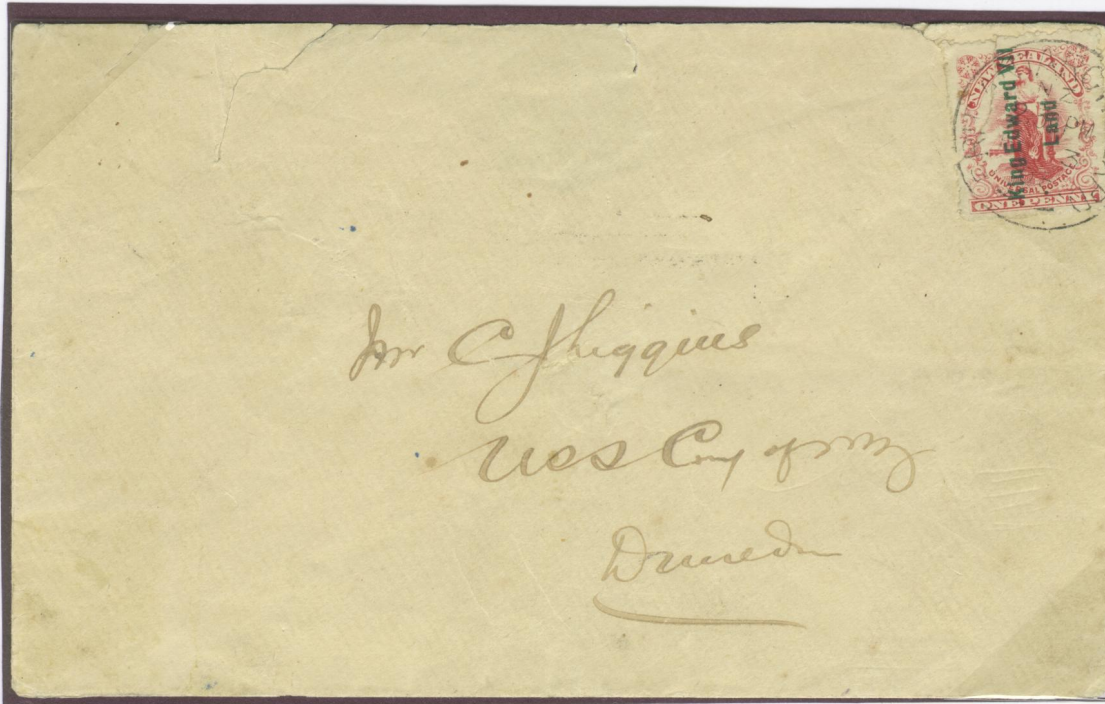 NEW ZEALAND
King Edward VII
Land
UNIVERSAL POSTAGE
ONE PENNY
Mr C J Higgins
USS Coy of NZ
Dunedin